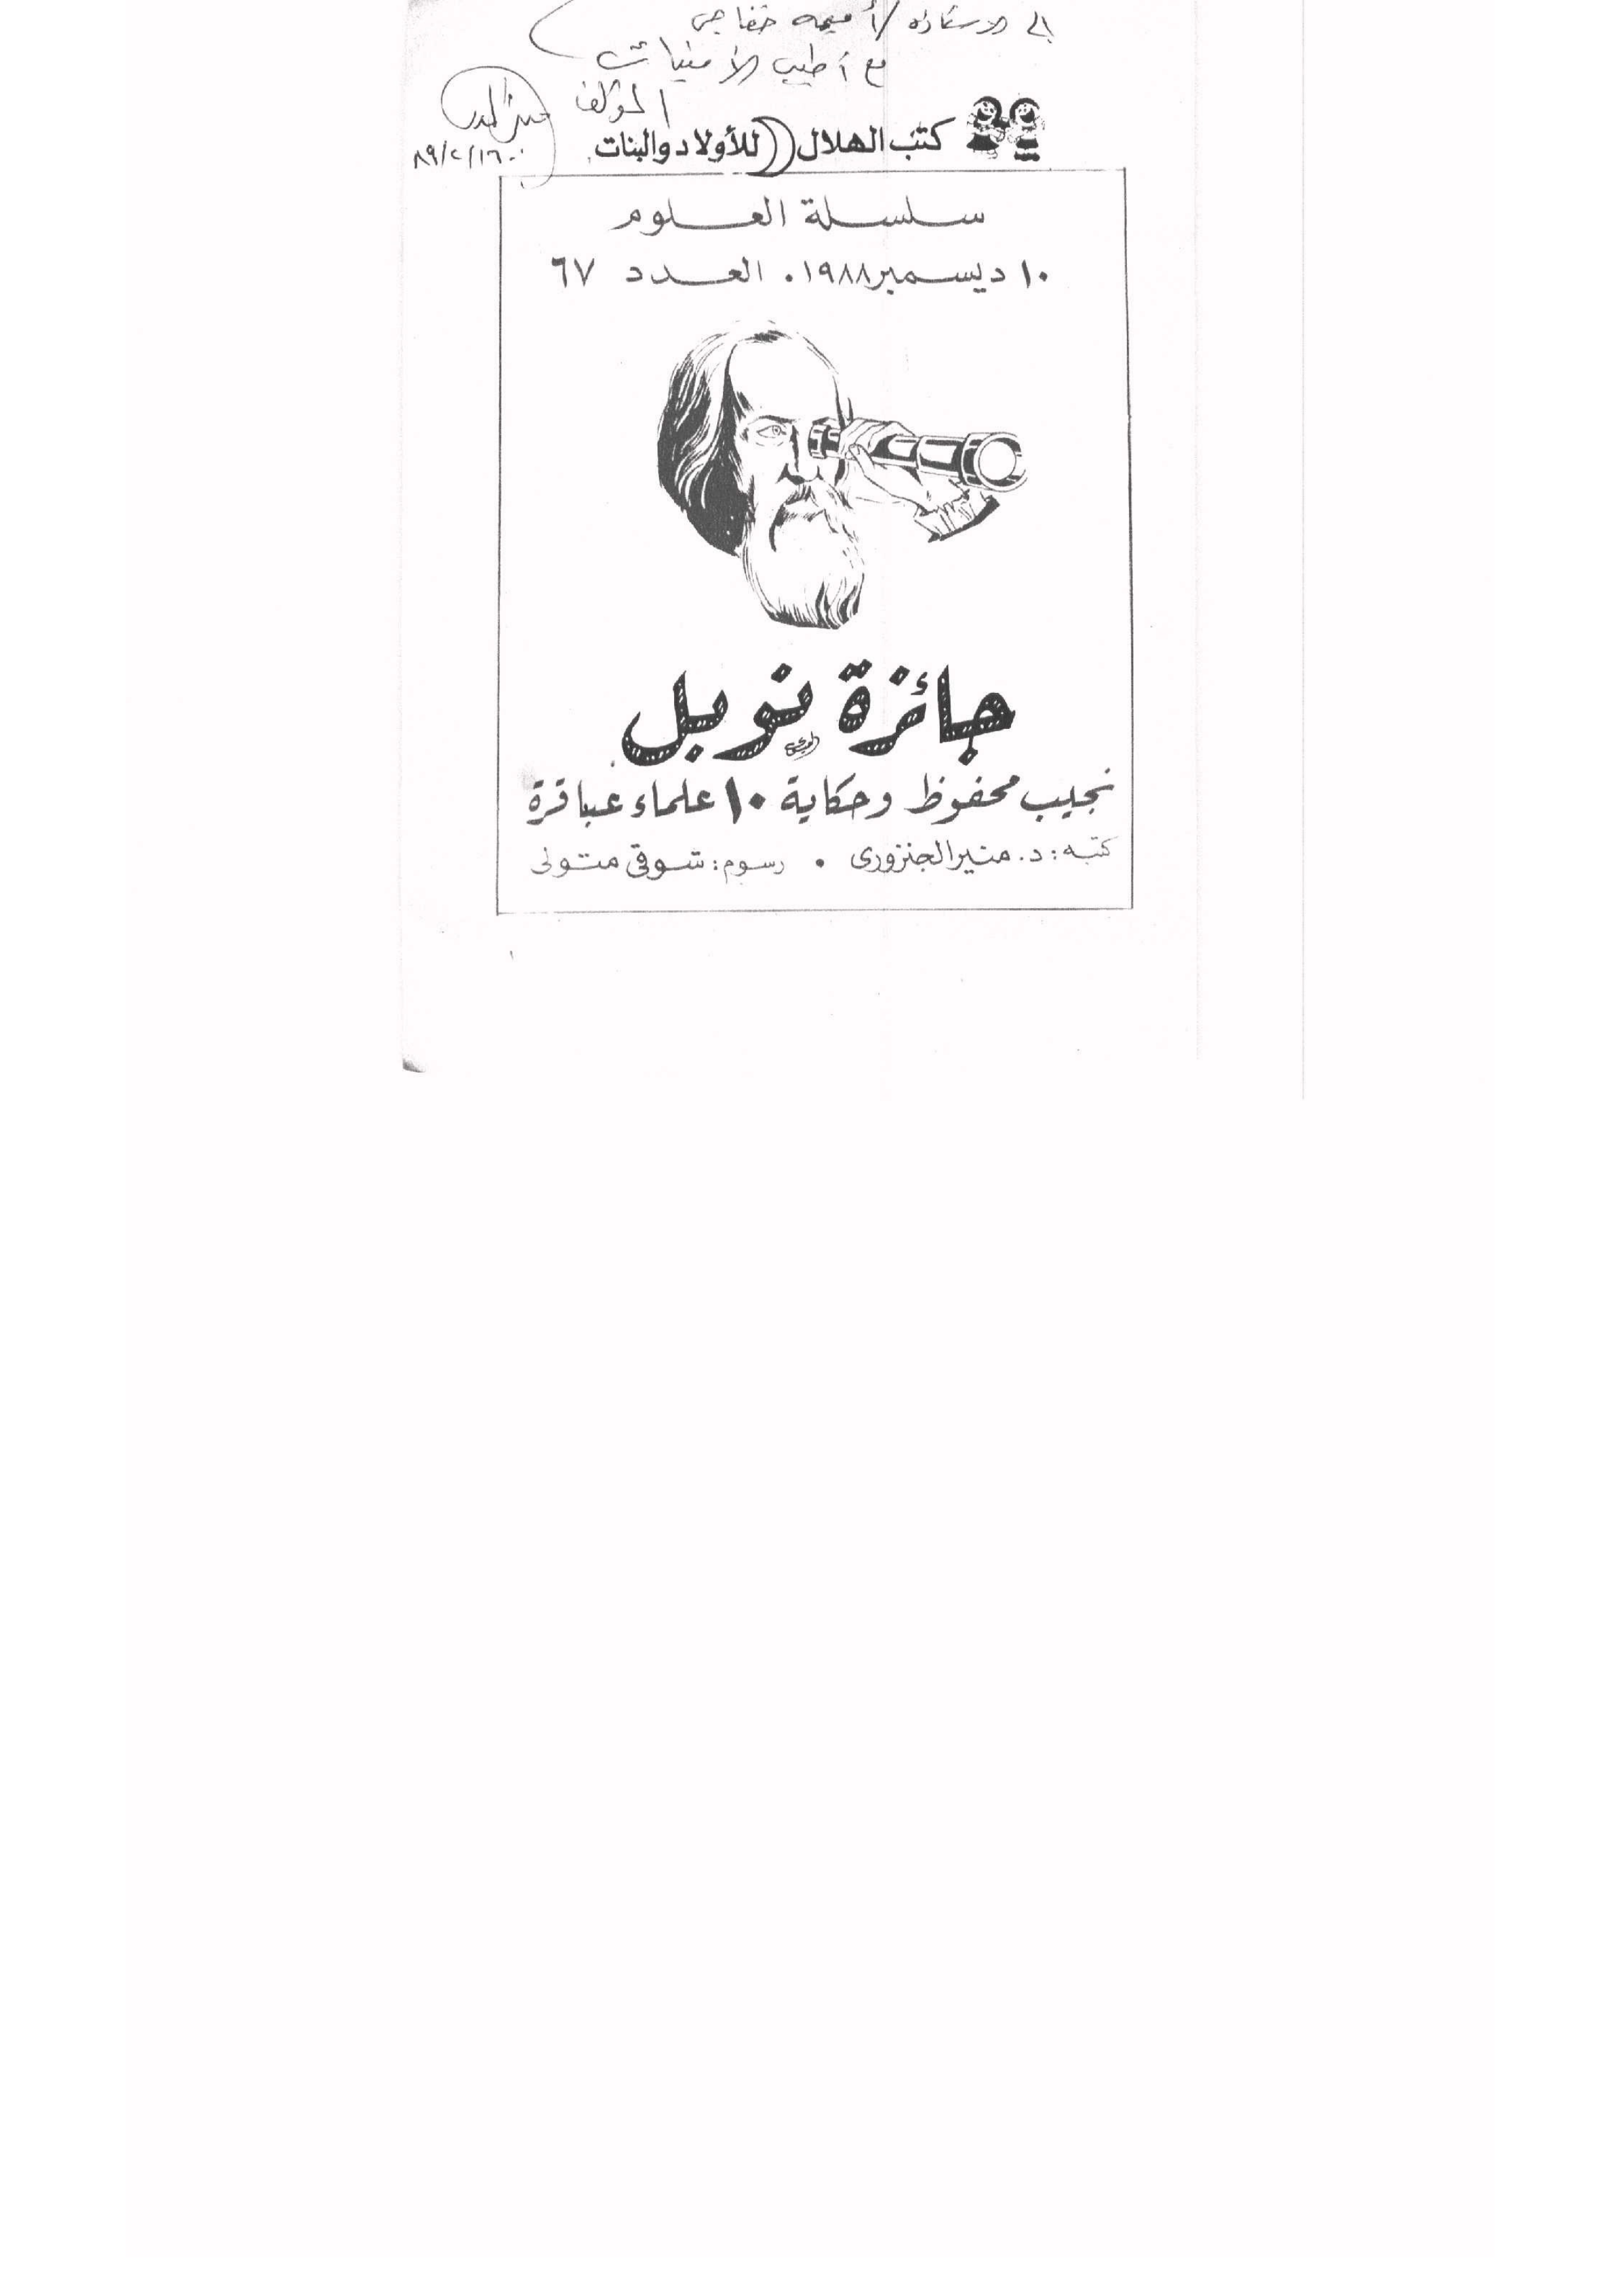 إلى الاستاذه / أميمه خفاجى
مع أطيب الأمنيات
المؤلف
٨٩/٢/١٦
كتب الهلال للأولاد والبنات
سلسلة العلوم
١٠ ديسمبر ١٩٨٨ . العدد ٦٧
جائزة نوبل
نجيب محفوظ وحكاية ١٠ علماء عباقرة
كتبه : د. منير الجنزورى • رسوم : شوقى متولى
١